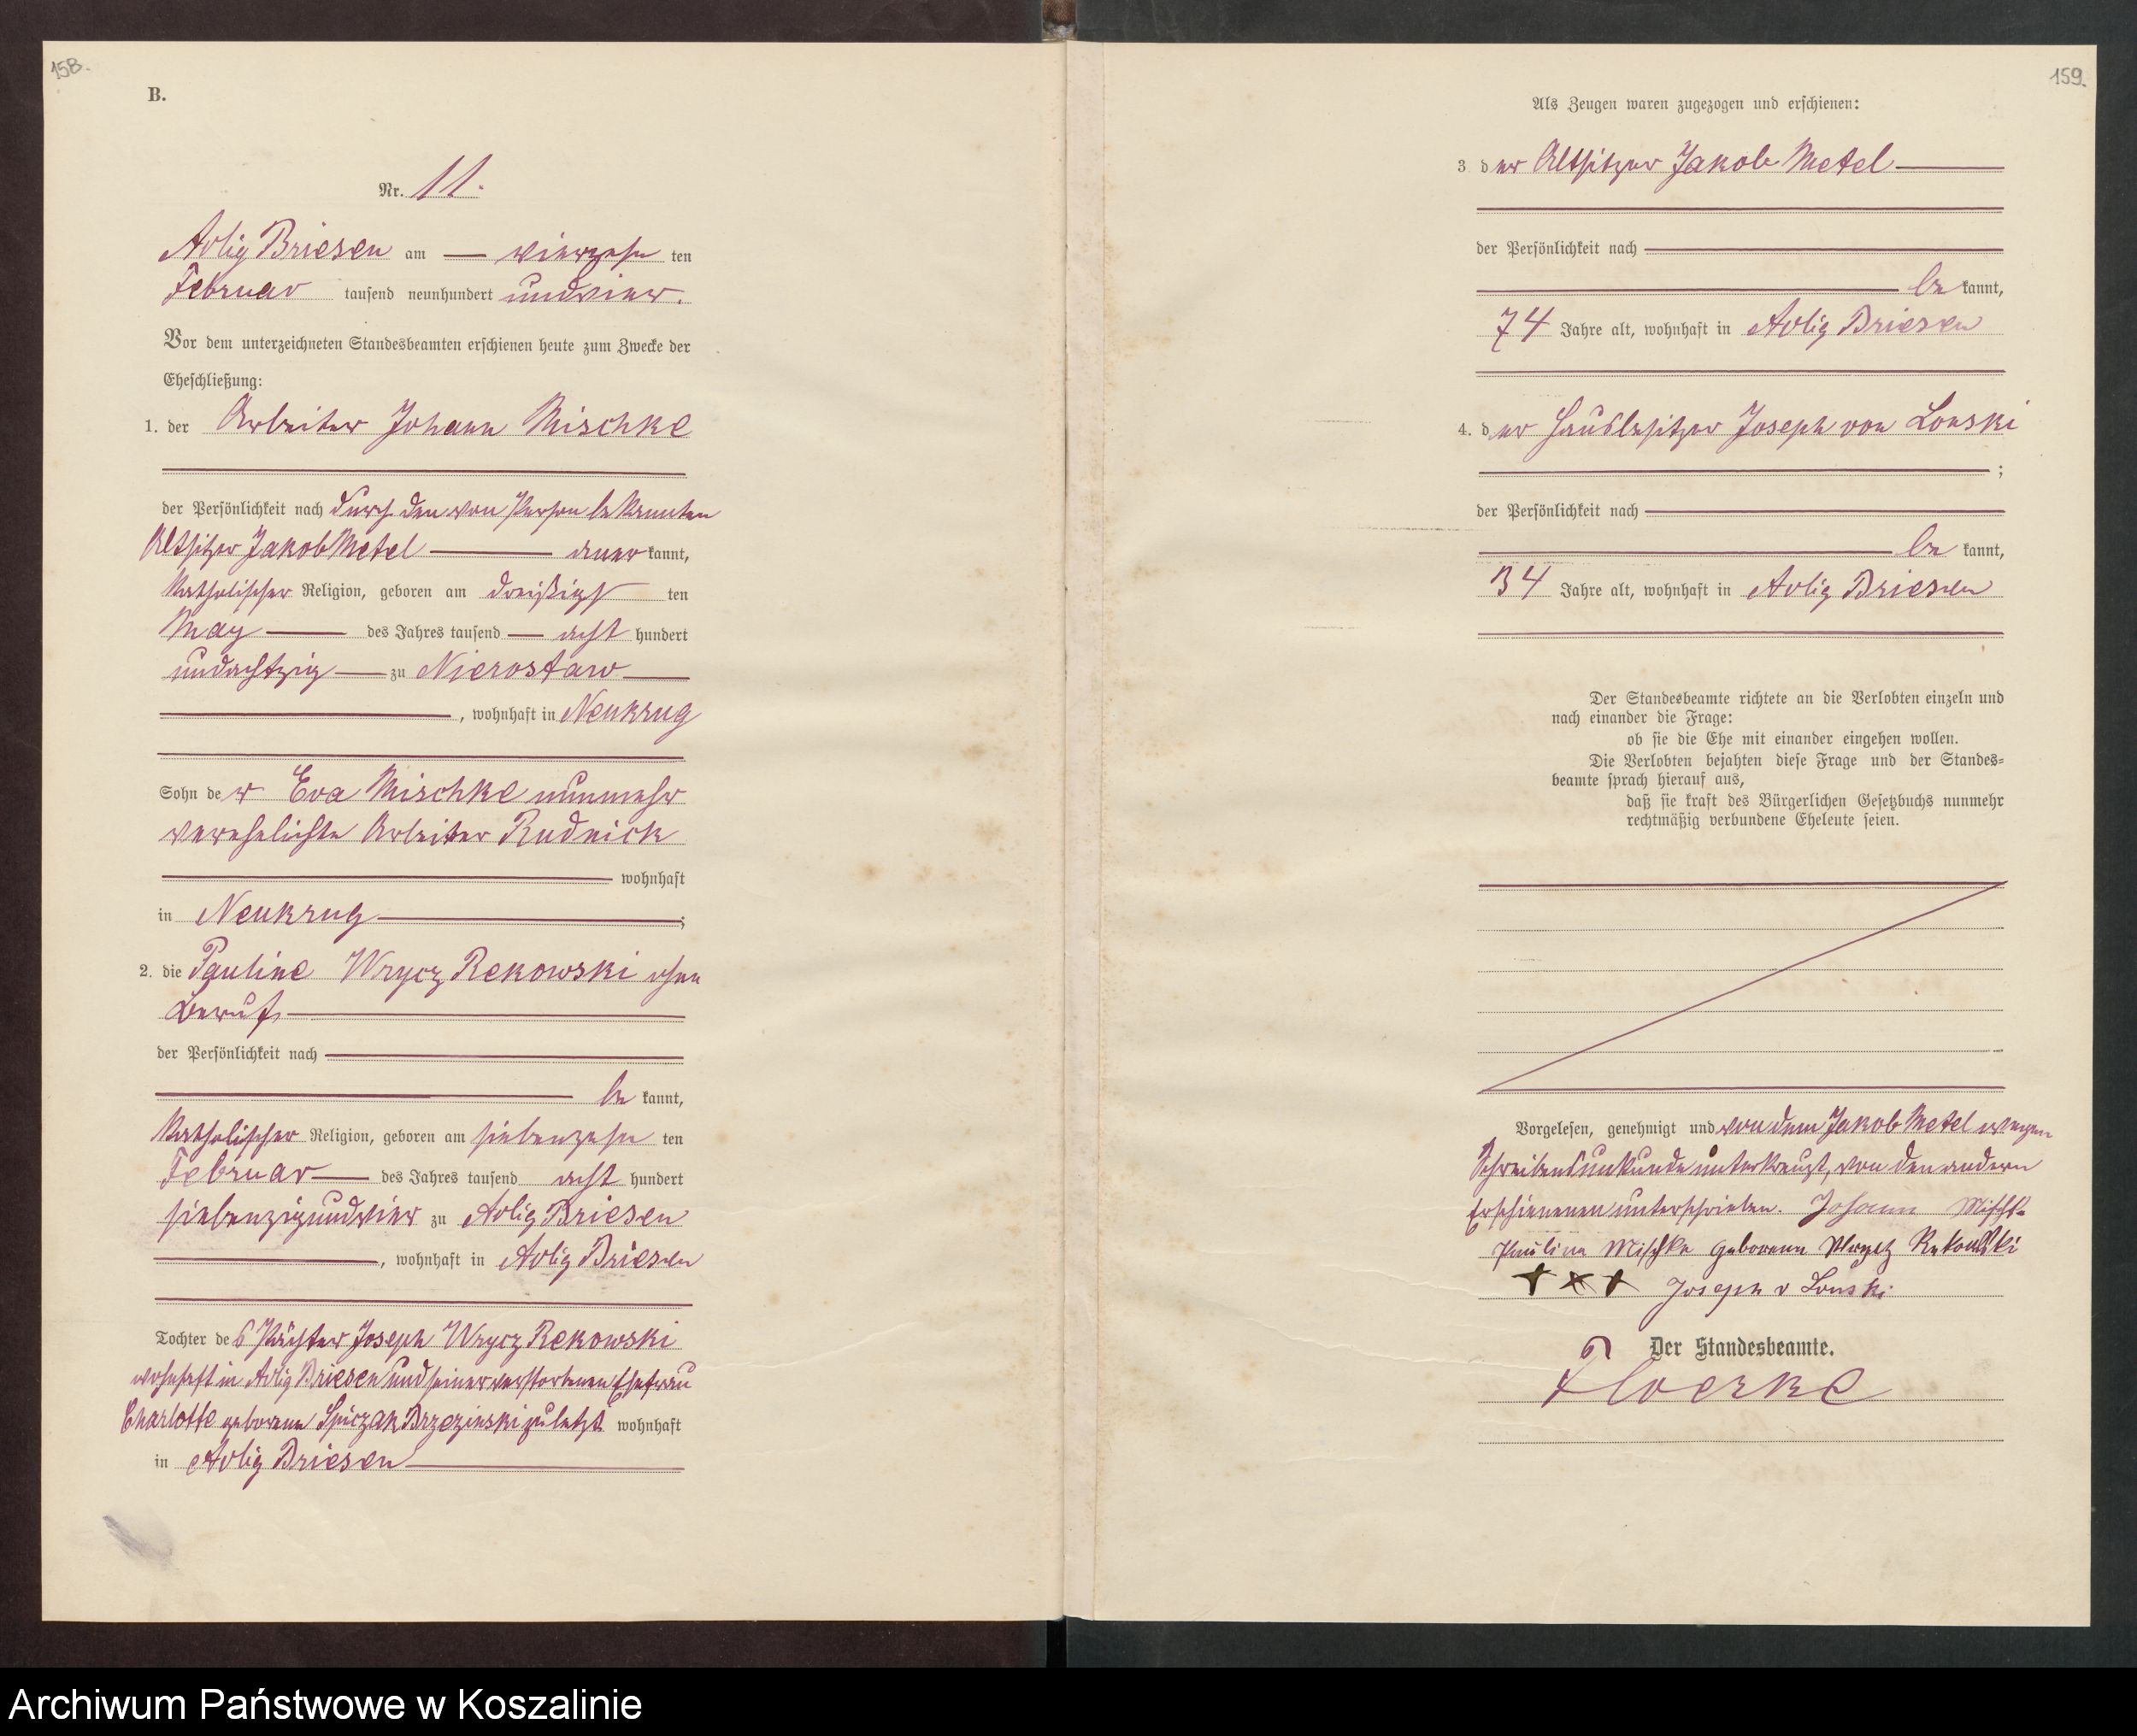 158.
B.
Nr. 11.
Adlig Briesen am vierzehn ten
Februar tausend neunhundert und vier.
Vor dem unterzeichneten Standesbeamten erschienen heute zum Zwecke der
Eheschließung:
1. der Arbeiter Johann Mischke
der Persönlichkeit nach durch den von Person bekannten
Altsitzer Jakob Metel aner kannt,
katholischer Religion, geboren am dreißigst ten
May des Jahres tausend acht hundert
undachtzig zu Nierostaw
, wohnhaft in Neukrug
Sohn der Eva Mischke nunmehr
verehelichte Arbeiter Rudnick
wohnhaft
in Neukrug ;
2. die Pauline Wrycz Rekowski ohne
Beruf
der Persönlichkeit nach
be kannt,
katholischer Religion, geboren am siebenzehn ten
Februar des Jahres tausend acht hundert
siebenzigundvier zu Adlig Briesen
, wohnhaft in Adlig Briesen
Tochter des Pächter Joseph Wrycz Rekowski
wohnhaft in Adlig Briesen und seiner verstorbenen Ehefrau
Charlotte geborene Spiczak Brzezinski zuletzt wohnhaft
in Adlig Briesen
159.
Als Zeugen waren zugezogen und erschienen:
3 der Altsitzer Jakob Metel
der Persönlichkeit nach
be kannt,
74 Jahre alt, wohnhaft in Adlig Briesen
4. der Hausbesitzer Joseph von Lonski
;
der Persönlichkeit nach
be kannt,
34 Jahre alt, wohnhaft in Adlig Briesen
Der Standesbeamte richtete an die Verlobten einzeln und
nach einander die Frage:
ob sie die Ehe mit einander eingehen wollen.
Die Verlobten bejahten diese Frage und der Standes=
beamte sprach hierauf aus,
daß sie kraft des Bürgerlichen Gesetzbuchs nunmehr
rechtmäßig verbundene Eheleute seien.
Vorgelesen, genehmigt und von dem Jakob Metel wegen
Schreibensunkunde unterkreuzt, von den andern
Erschienenen unterschrieben. Johann Mischke
Paulina Mischke geborene Wrycz Rekowski
+ + + Joseph v Lonski
Der Standesbeamte.
Floerke
Archiwum Państwowe w Koszalinie